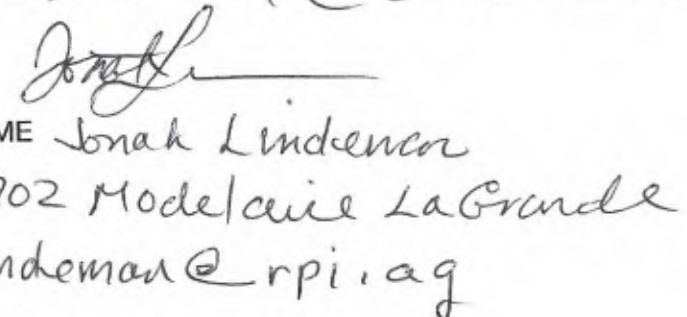 Jonah L
ME Jonah Lindeman
902 Modelaire LaGrande
ndeman@rpi.ag